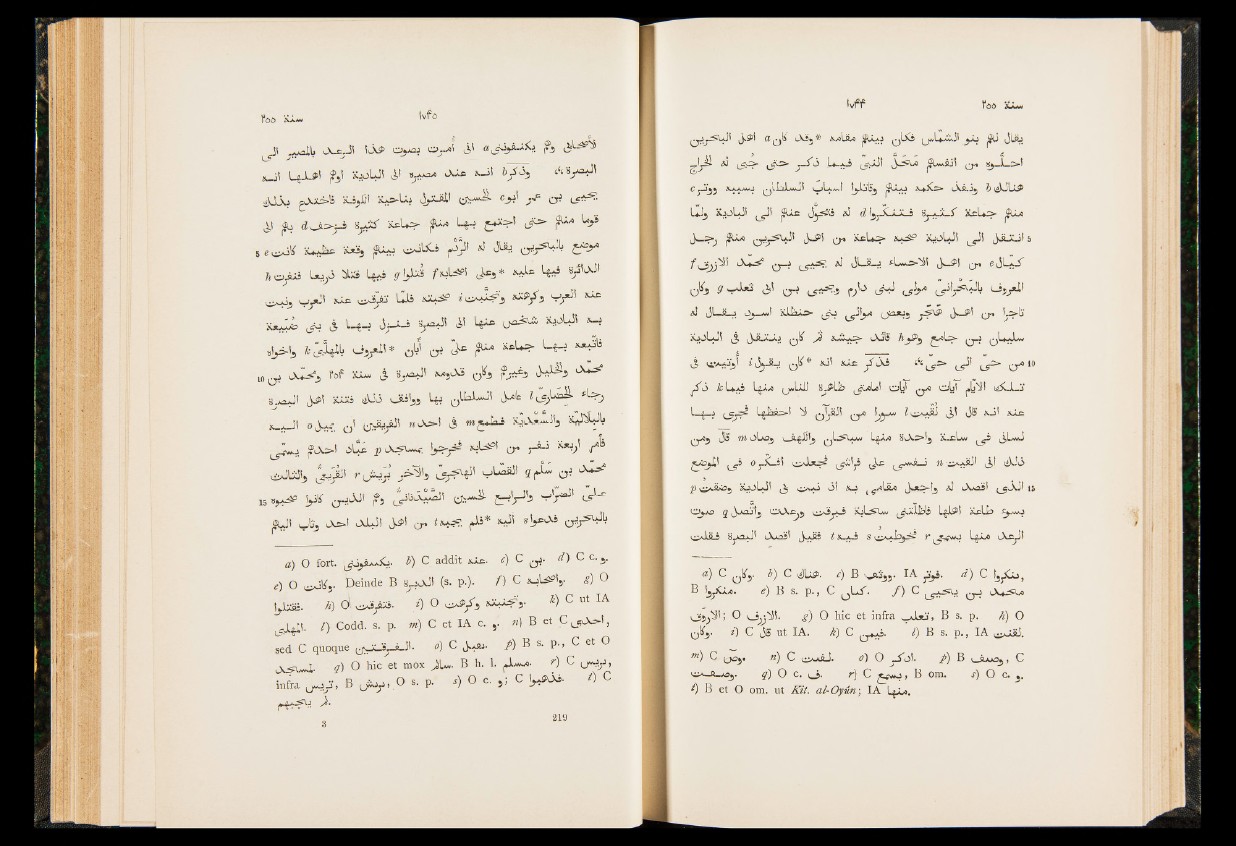 سنة ٢٥٥ ١٧۴۴
يقال لهم بنو الشماس فكان بينهم مقامه *وقد كان a اهل البحرين
احلّوه من انفسهم محلّ النبيّ فيما ذكر حتى جُبى له الخراج
هنالك b ونفذ حكمه بينهم وقاتلوا اسباب السلطان بسببه ووتر c
منهم جماعة كثيرة فتنكّروا d له فتحوّل عنهم الى البادية ولمّا
5 انتقل الى البادية صحبه جماعة من اهل البحرين منهم رجل
كيّال e من اهل الاحساء يقال له يحيى بن محمّد الازرق f
المعروف بالبحرانيّ مولى لبنى دارم ويحيى بن ابى ثعلب g وكان
تاجرا من اهل هجر وبعض موالى بنى حنظلة اسود يقال له
سليمان بن جامع وهو h قائد جيشه ثم كان ينتقل في البادية
10 من حىّ الى حىّ ∴ فذُكر عنه انه *كان يقول i أوتيت في
تلك الايّام آيات من آيات امامتى ظاهرة للناس منها فيما k ذكر
عنه انه قال انى لُقّيت l سورا من القرآن لا احفظها فجرى بها
لسانى في ساعة واحدة منها سبحان والكهف وصاد m قال ومن
ذلك انى القيت n نفسى على فراشى فجعلت افكّر o في الموضع
15 الذى اقصد له واجعل مقامى به اذ نبت بى البادية وضقت p
بسوء طاعة اهلها فأظلّتنى سحابة فبرقت ورعدت واتّصل q صوت
الرعد منها بسمعى r فخوطبت s فيه t فقيل اقصد البصرة فقلت
a) C وكان. b) C هناك. c) B ووثب. IA فوتر. d) C فنكروا,
B منكروا. e) B s. p., C كان. f) C محمد بن يحيى
الازرق; O الازرق. g) O hic et infra تغلب, B s. p. h) O
وكان. i) C قال ut IA. k) C فيهم. l) B s. p., IA لقنت.
m) C وص. n) C لفت. o) O اذكر. p) B وضف, C
وضعف. q) O c. ف. r) C يسمع, B om. s) O c. و.
t) B et O om. ut Kit. al-Oyûn; IA منها.
١٧۴٥ سنة ٢٥٥
لأصحابى وهم يكنفوننى a انى أمرت بصوت هذا الرعد بالمصير الى
البصرة ∴ وذكر b انه عند مصيره الى البادية اوهم اهلها انه
يحيى بن عمر ابو c الحسين المقتول بناحية الكوفة فاختدع بذلك
قوما منهم حتى اجتمع بها منهم جماعة كثيرة فزحف d بهم الى
5 موضع بالبحرين يقال له الرّدْم فكانت بينهم وقعة عظيمة كانت e
الدائرة فيها عليه *وعلى اصحابه f قُتلوا g فيها قتلا ذريعا فنفرت h
عنه العرب وكرهته وتجنّبت i صحبته فلمّا تفرّقت عنه العرب ونبت
به البادية شخص عنها الى البصرة فنزل بها في بنى ضُبيعة
فأتّبعه بها جماعة منهم علىّ بن أبان *المعروف بالمهلّبىّ k واخواه
10 محمّد والخليل وغيرهم وكان قدومه البصرة في سنة ٢٥۴ ومحمّد بن
رجاء الحضارىّ l عامل السلطان بها ووافق ذلك فتنة اهل البصرة
بالبلاليّة والسَّعْديّة فطمع m في احد n الفريقين ان يميل o اليه
فأمر اربعة نفر من اصحابه فخرجوا بمسجد p عباد احدهم يسمّى
محمّد بن سلم q القصّاب الهجرىّ والآخر بُريش r القُريعىّ والثالث
15 علىّ الضرّاب والرابع الحسين الصَّيْدنانىّ وهم الذين كانوا صحبوه
بالبحرين فدعوا s اليه *فلم يجبه t من اهل البلد احد وثاب اليهم
a) O fort. يكنفونى. b) C addit عنه. c) C بن. d) C c. و.
e) O وكانت. Deinde B (s. p.). f) C واصحابه. g) O
فقتلوا. h) O فتفرقت. i) O وكرهت وتجنبته. k) C ut IA
المهلبى. l) Codd. s. p. m) C et IA c. و. n) B et C احدى,
sed C quoque الفريقين. o) C . p) B s. p., C et O
المسجد. q) O hic et mox سالم. B h. l. مسلم. r) C ,
infra , B , O s. p. s) O c. و; C فذهبوا. t) C
لم يجبهم.
3 219